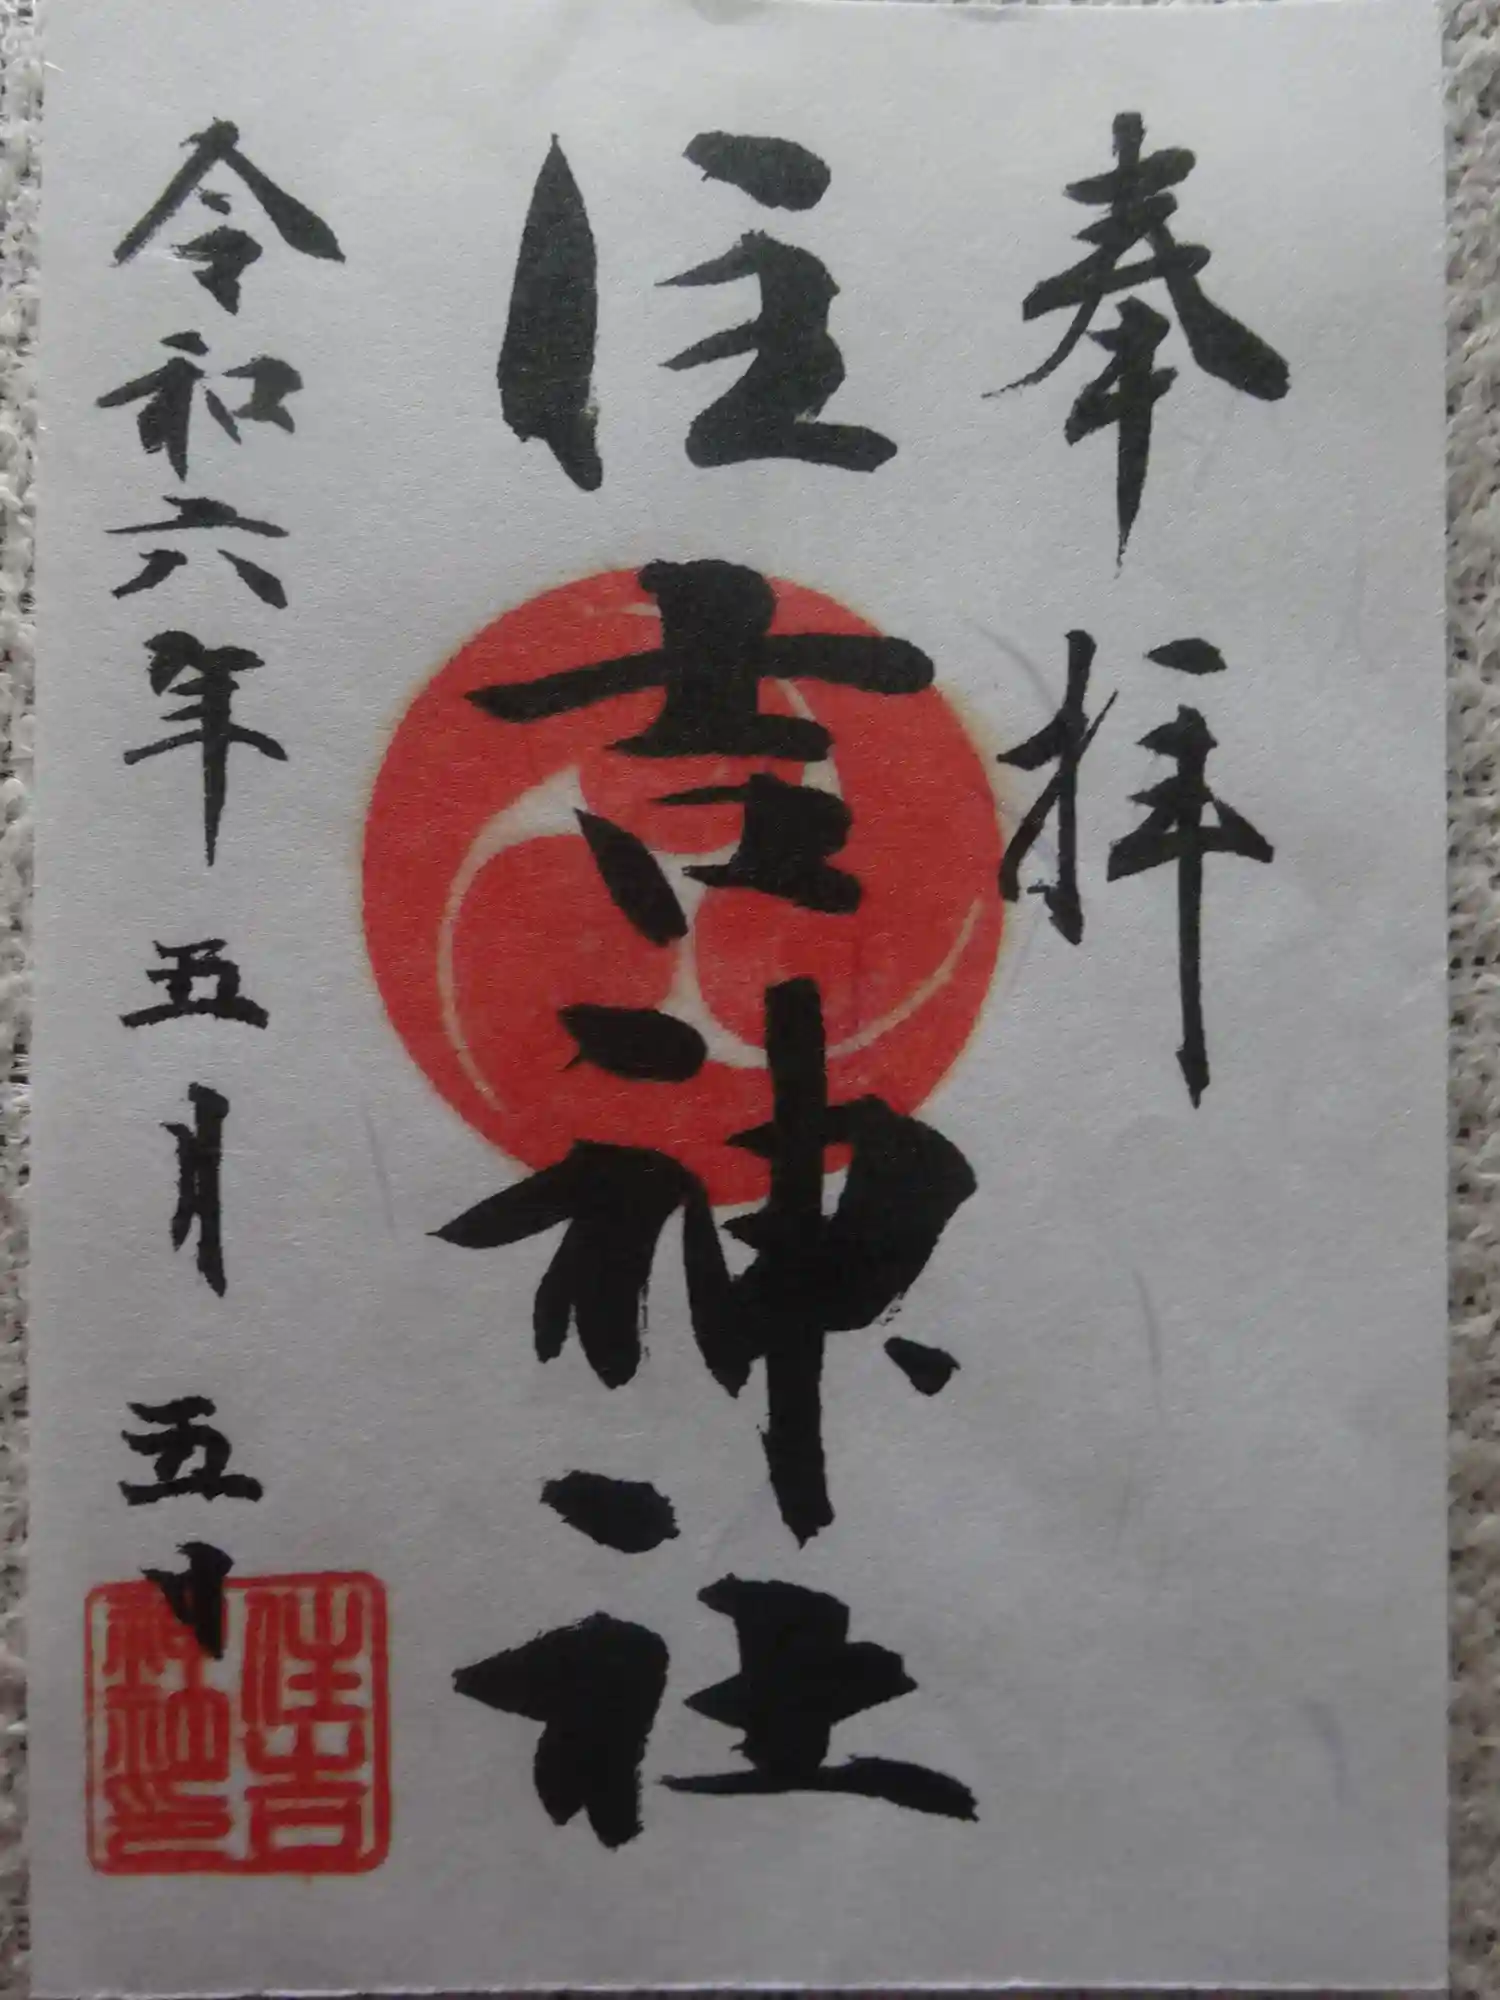 奉拝
住吉神社
令和六年五月五日
住吉
神社印